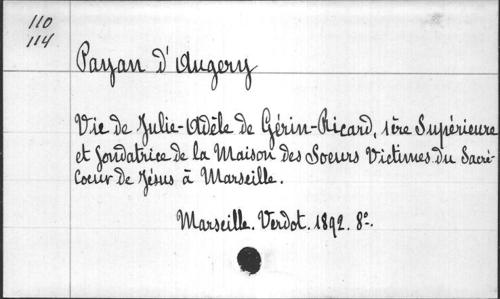 110
114
Payan d'Augery
Vie de Julie-Adèle de Gérin-Ricard, 1ère Supérieure
et fondatrice de la Maison des Soeurs Victimes du Sacré-
coeur de Jésus à Marseille.
Marseille. Verdot. 1892. 8º.